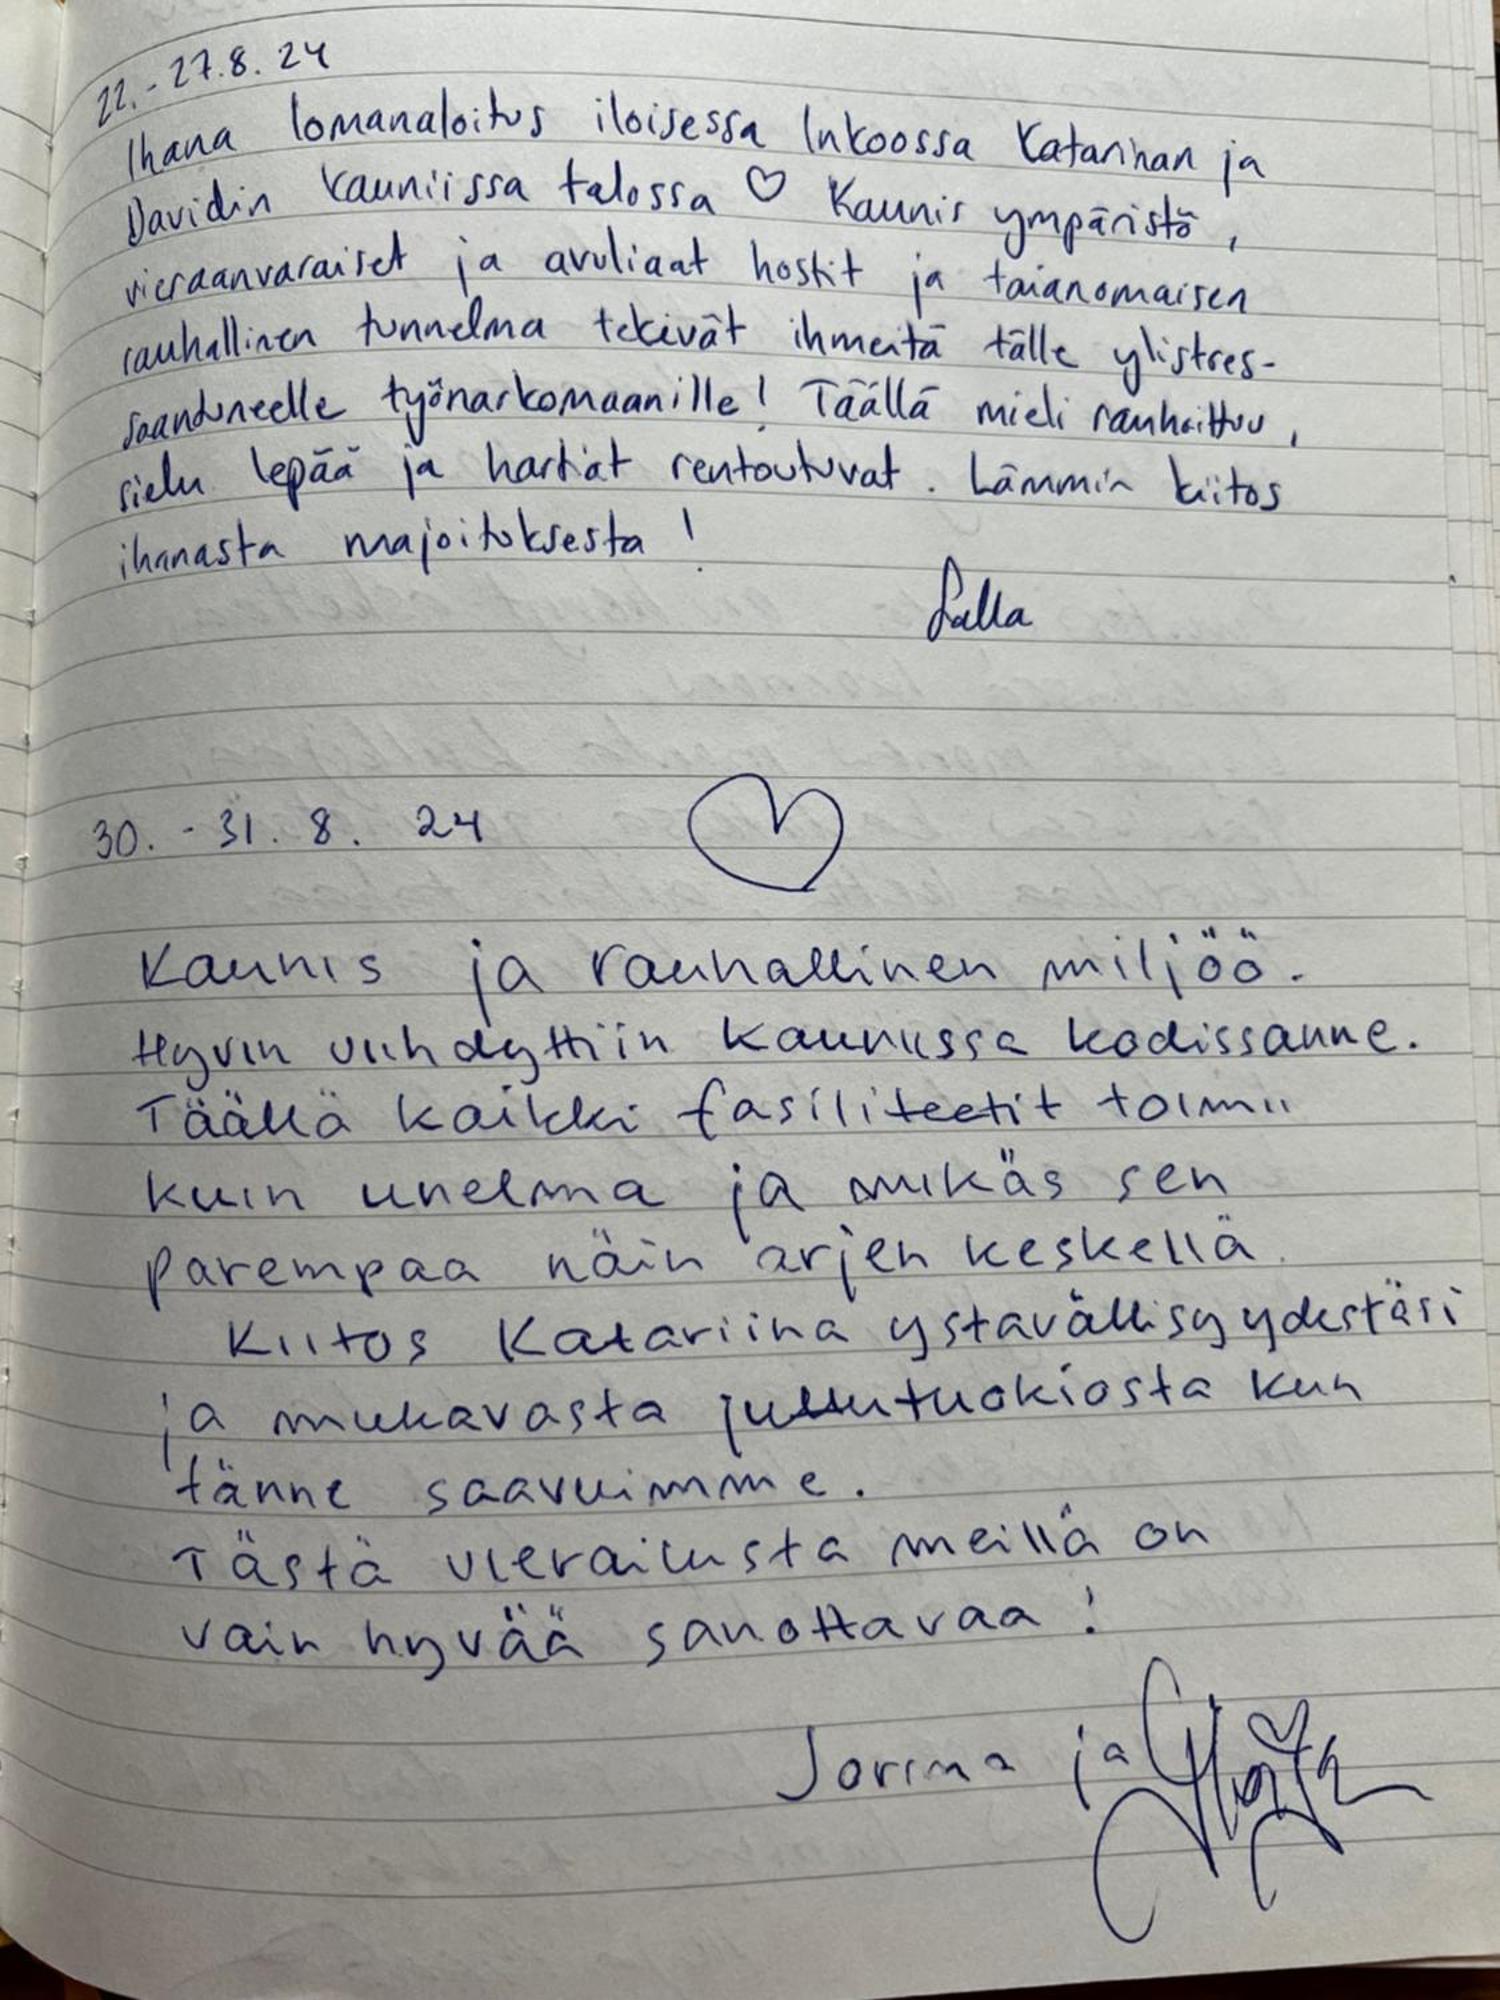 22.-27.8.24
Ihana lomanaloitus iloisessa Inkoossa Katariinan ja
Davidin kauniissa talossa ♡ Kaunis ympäristö,
vieraanvaraiset ja avuliaat hostit ja taianomaisen
rauhallinen tunnelma tekivät ihmeitä tälle ylistres-
saantuneelle työnarkomaanille! Täällä mieli rauhoittuu,
sielu lepää ja hartiat rentoutuvat. Lämmin kiitos
ihanasta majoituksesta!
Salla
30.-31.8.24
Kaunis ja rauhallinen miljöö.
Hyvin viihdyttiin kauniissa kodissanne.
Täällä kaikki fasiliteetit toimii
kuin unelma ja mikäs sen
parempaa näin arjen keskellä.
Kiitos Katariina ystävällisyydestäsi
ja mukavasta juttutuokiosta kun
tänne saavuimme.
Tästä vierailusta meillä on
vain hyvää sanottavaa!
Jorma ja